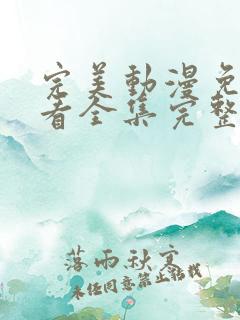 完美動漫免
看全集完整
落雨秋寒
未经同意禁止转载